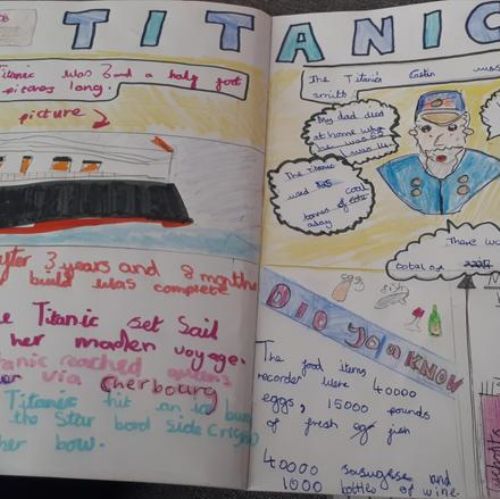 TITANIC
Titanic was 3 and a half foot
pitches long.
picture
After 3 years and 8 months
build was complete
Titanic set Sail
her maden voyage.
Titanic reached
via Cherbourg
Titanic hit an ice burg
the Star bord side
her bow.
The Titanic's was
smith
My dad died
at home when
he was 62
I was 14
The Titanic
used 825 coal
tonnes of
aday
There wa
total of
egg
fish
DID YOU KNOW
The food items
recorder were 40000
eggs, 15000 pounds
of fresh fish
40000 sasugese and
1000 bottles of wine